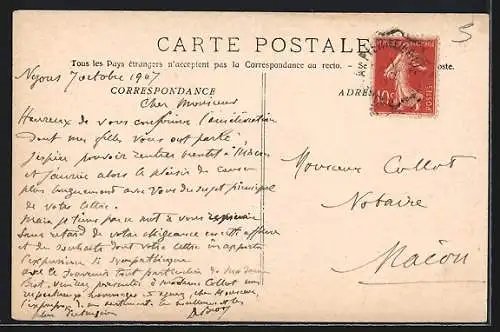 CARTE POSTALE
Tous les Pays étrangers n'acceptent pas la Correspondance au recto. - Se
oste.
CORRESPONDANCE
ADRE
5
10
POSTES
Nyons 7 octobre 1907
Cher Monsieur
Heureux de vous confirmer l'amélioration
dont mes filles vous ont parlé
J'espère pouvoir rentrer bientôt à Mâcon
et j'aurai alors le plaisir de causer
plus longuement avec vous du sujet principal
de votre lettre.
Mais je tiens par ce mot à vous
sans retard de votre obligeance en cette affaire
et des souhaits dont votre lettre m'apporte
l'expression si sympathique
avec le souvenir tout particulier de Madame
Veuillez présenter à Madame Collot mes
respectueux hommages et agréer, cher Monsieur,
l'expression de mes sentiments les meilleurs et les
plus
Monsieur Collot
Notaire
Mâcon